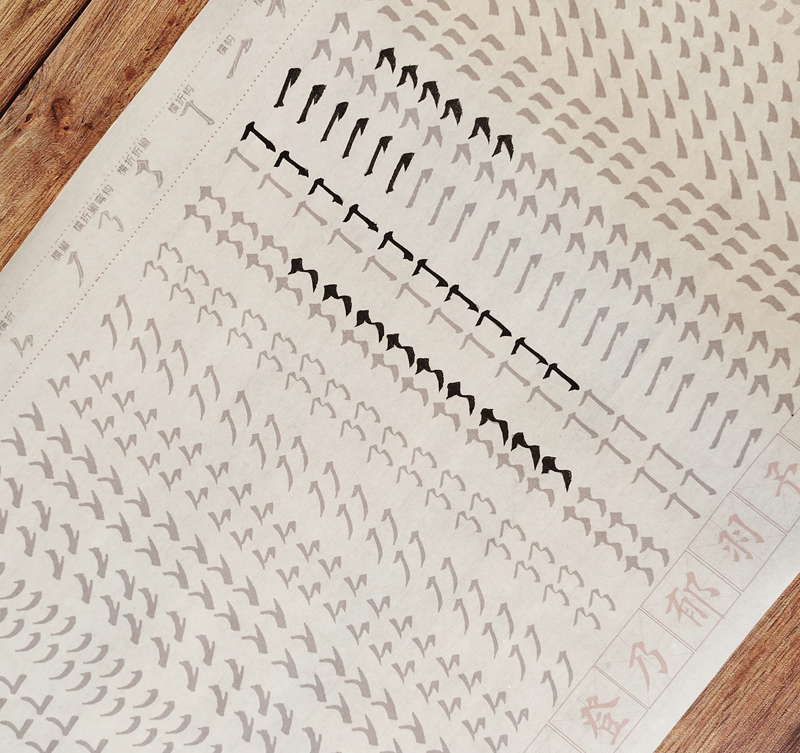 横钩
横折钩
横折折撇
横折撇弯钩
横撇
横折
予
羽
郁
乃
登